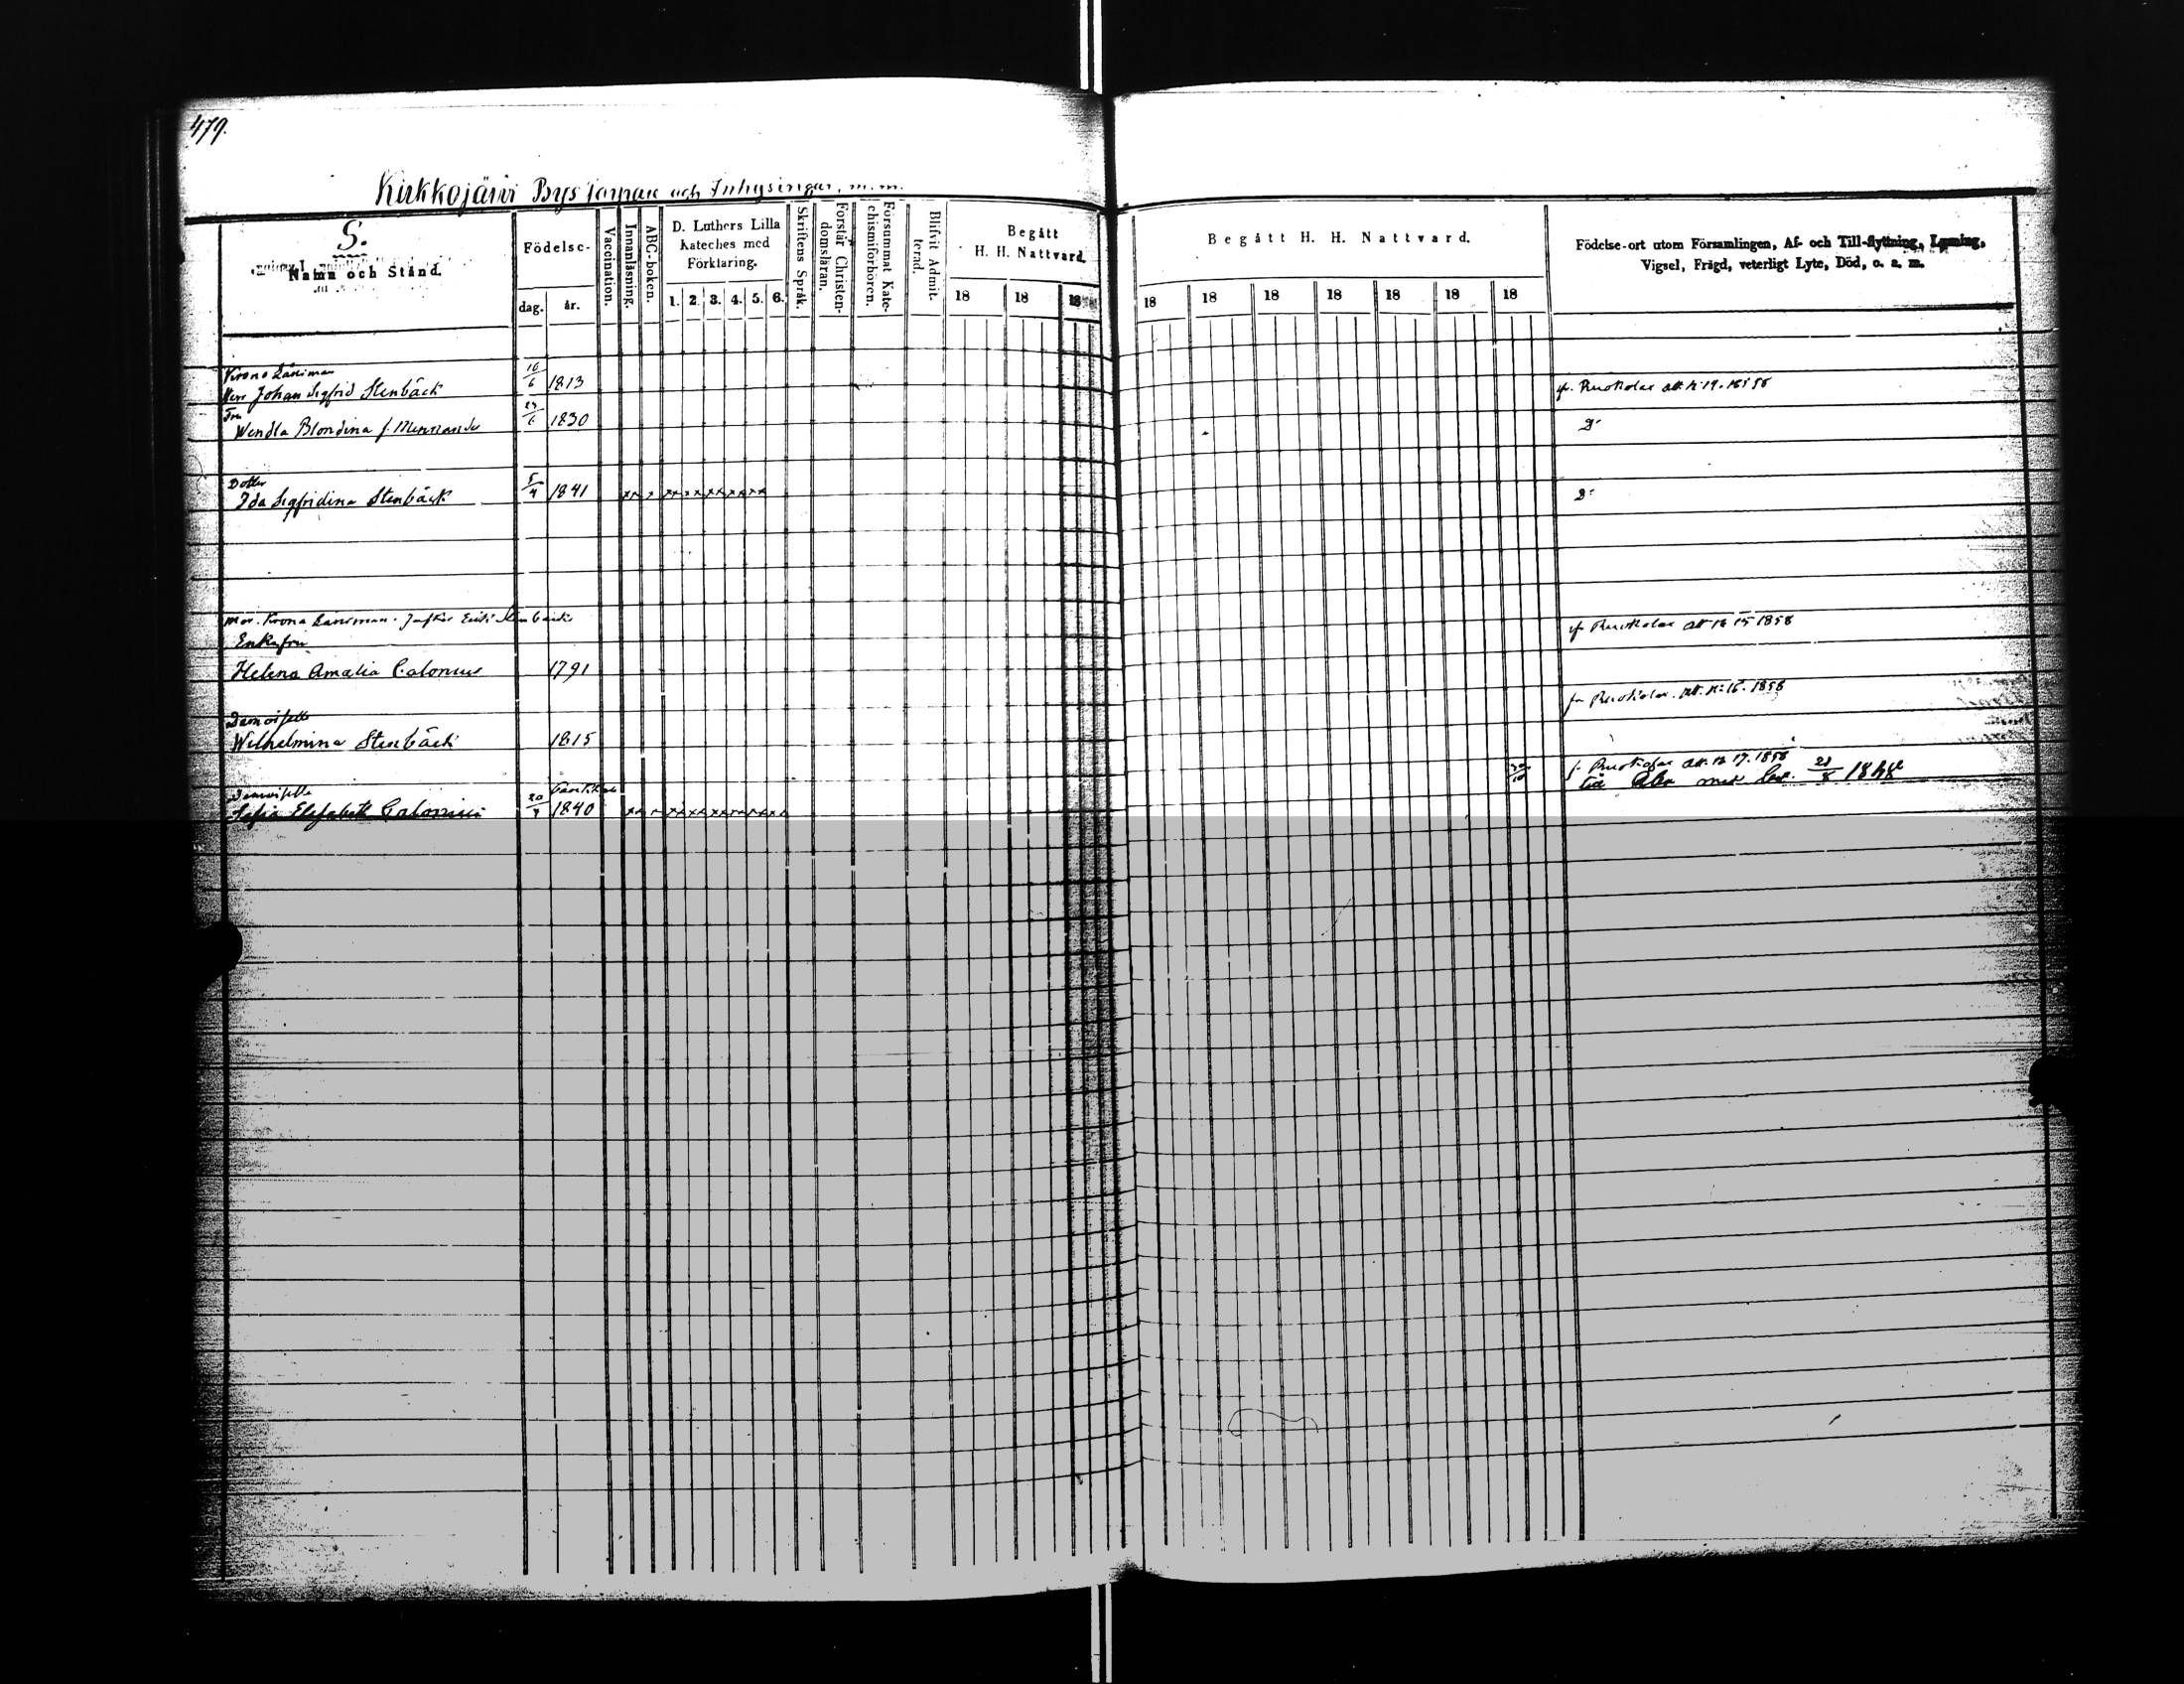 479.
Kirkkojärvi Bys Torpare och Inhysingar, m.m.
S.
Namn och Stånd.
Födelse-
dag. år.
Vaccination.
Innanläsning.
ABC-boken.
D. Luthers Lilla
kateches med
Förklaring.
1. 2. 3. 4. 5. 6.
Skriftens Språk.
Förstår Christen-
domsläran.
Försummat Kate-
chismiförhören.
Blifvit Admit-
terad.
Begått
H. H. Nattvard.
18 18 18
Begått H. H. Nattvard.
18 18 18 18 18 18 18
Födelse-ort utom Församlingen, Af- och Till-flyttning, Lysning,
Vigsel, Frägd, veterligt Lyte, Död, o. s. m.
Krono Länsman
Herr Johan Sigfrid Stenbäck 10/6 1813 fr. Ruokolax att. N 19. 1858
Fru
Wendla Blondina f. 1830 D:
Dotter
Ida Sigfridina Stenbäck 5/4 1841 D:
Krona Länsman Stenbäcks
Enkefru fr Ruokolax att N 15 1858
Helena Amalia Calonius 1791
Damoiselle fr Ruokolax. att. N: 16. 1858
Wilhelmina Stenbäck 1815
Damoiselle f. Ruokolax att. N 17. 1858
Sofia Elisabeth Calonius 20/4 1840 till Åbo med 21/8